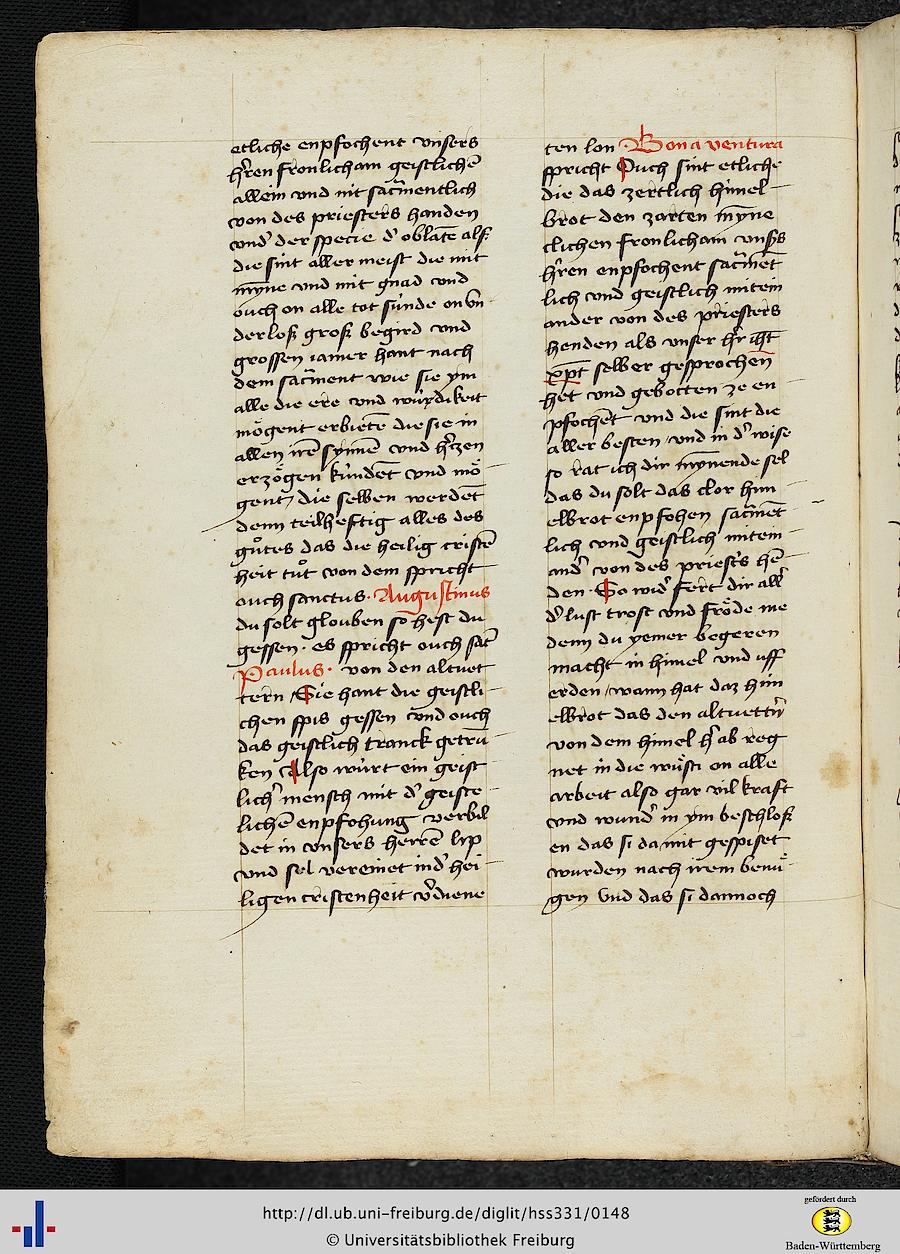 etliche enpfochent vnsers
hˀren fronlicham geistlichē
allein vnd nit sacͬmentlich
von des priesters handen
vndˀ der specie dˀ oblate als
die sint aller meist die mit
myne vnd mit gnad vnd
ouch on alle tot sünde on vn
derloß groß begird vnd
grossen iamer hant nach
dem sacͬment wie sie ym
alle die ere vnd wirdikeit
mögent erbietē die sie in
allen irē synnē vnd hˀzen
erzögen kündēt vnd mö
gent / die selben werdēt
denn teilheftig alles des
gůtes das die heilig cristē
heit tůt von dem spricht
ouch sanctus · Augustinus
du solt glouben so hest du
gessen · es spricht ouch sāt
Paulus · von den altuet
tern Sie hant die geistli
chen spis gessen vnd ouch
das geistlich tranck getrū
ken Also würt ein geist
lichˀ mensch mit dˀ geiste
lichē enpfohung verbil
det in vnsers herrē lip
vnd sel vereinet in dˀ hei
ligen cristenheit vˀdiene
ten lon Bonauentura
spricht Ouch sint etliche
die das zertlich himel
brot den zarten myne
clichen fronlicham vnsˀs
hˀren enpfochent sacͬmēt
lich vnd geistlich mitein
ander von des priesters
henden als vnser hˀr ih̄s
xp̄t selber gesprochen
het vnd gebotten ze en
pfochēt vnd die sint die
aller besten / vnd in dˀ wise
so rat ich dir mynende sel
das du solt das clor him
elbrot enpfohen sacͬmēt
lich vnd geistlich mitein
andˀ von des priestˀs hē
den · So widˀ fert dir allˀ
dˀ lust trost vnd fröde me
denn du yemer begeren
macht in himel vnd vff
erden / wann hat daz him
elbrot das den altuettˀn
von dem himel hˀ ab reg
net in die wüsti on alle
arbeit also gar vil kraft
vnd wundˀ in ym beschloß
en das si da mit gespiset
wurden nach irem benü
gen vnd das si dannoch
http://dl.ub.uni-freiburg.de/diglit/hss331/0148
© Universitätsbibliothek Freiburg
gefördert durch
Baden-Württemberg